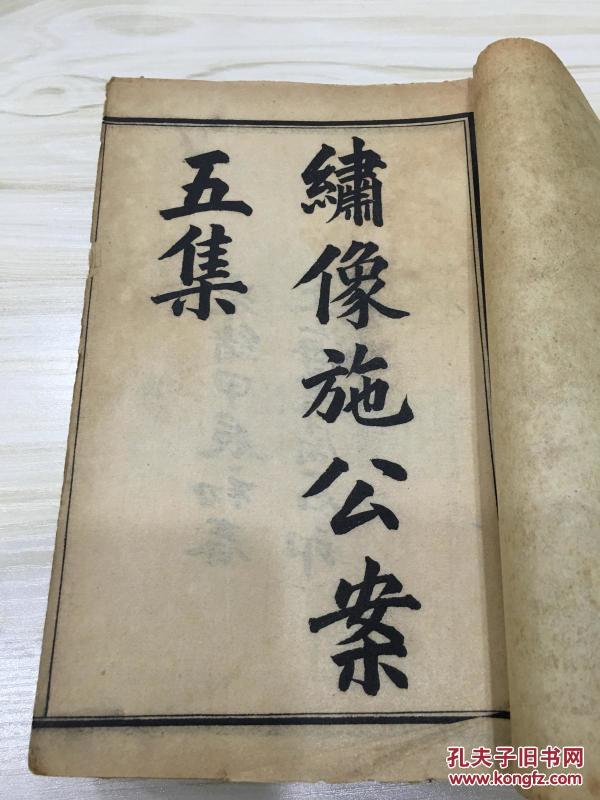 繡像施公案
五集
孔夫子旧书网
www.kongfz.com